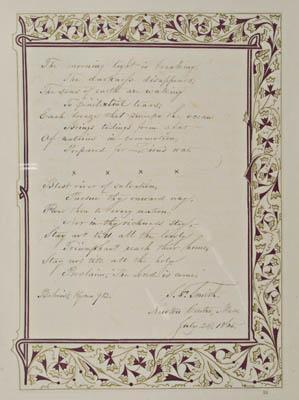 The morning light is breaking,
The darkness disappears;
The sons of earth are waking
To penitential tears;
Each breeze that sweeps the ocean
Brings tidings from afar
Of nations in commotion,
Prepared for Zion's war.
x x x x
Blest river of salvation,
Pursue thy onward way;
Flow thou to every nation,
Nor in thy richness stay;—
Stay not till all the lowly
Triumphant reach their home;
Stay not till all the holy
Proclaim, The Lord is come.
S. F. Smith.
Newton Centre, Mass.
July 24,